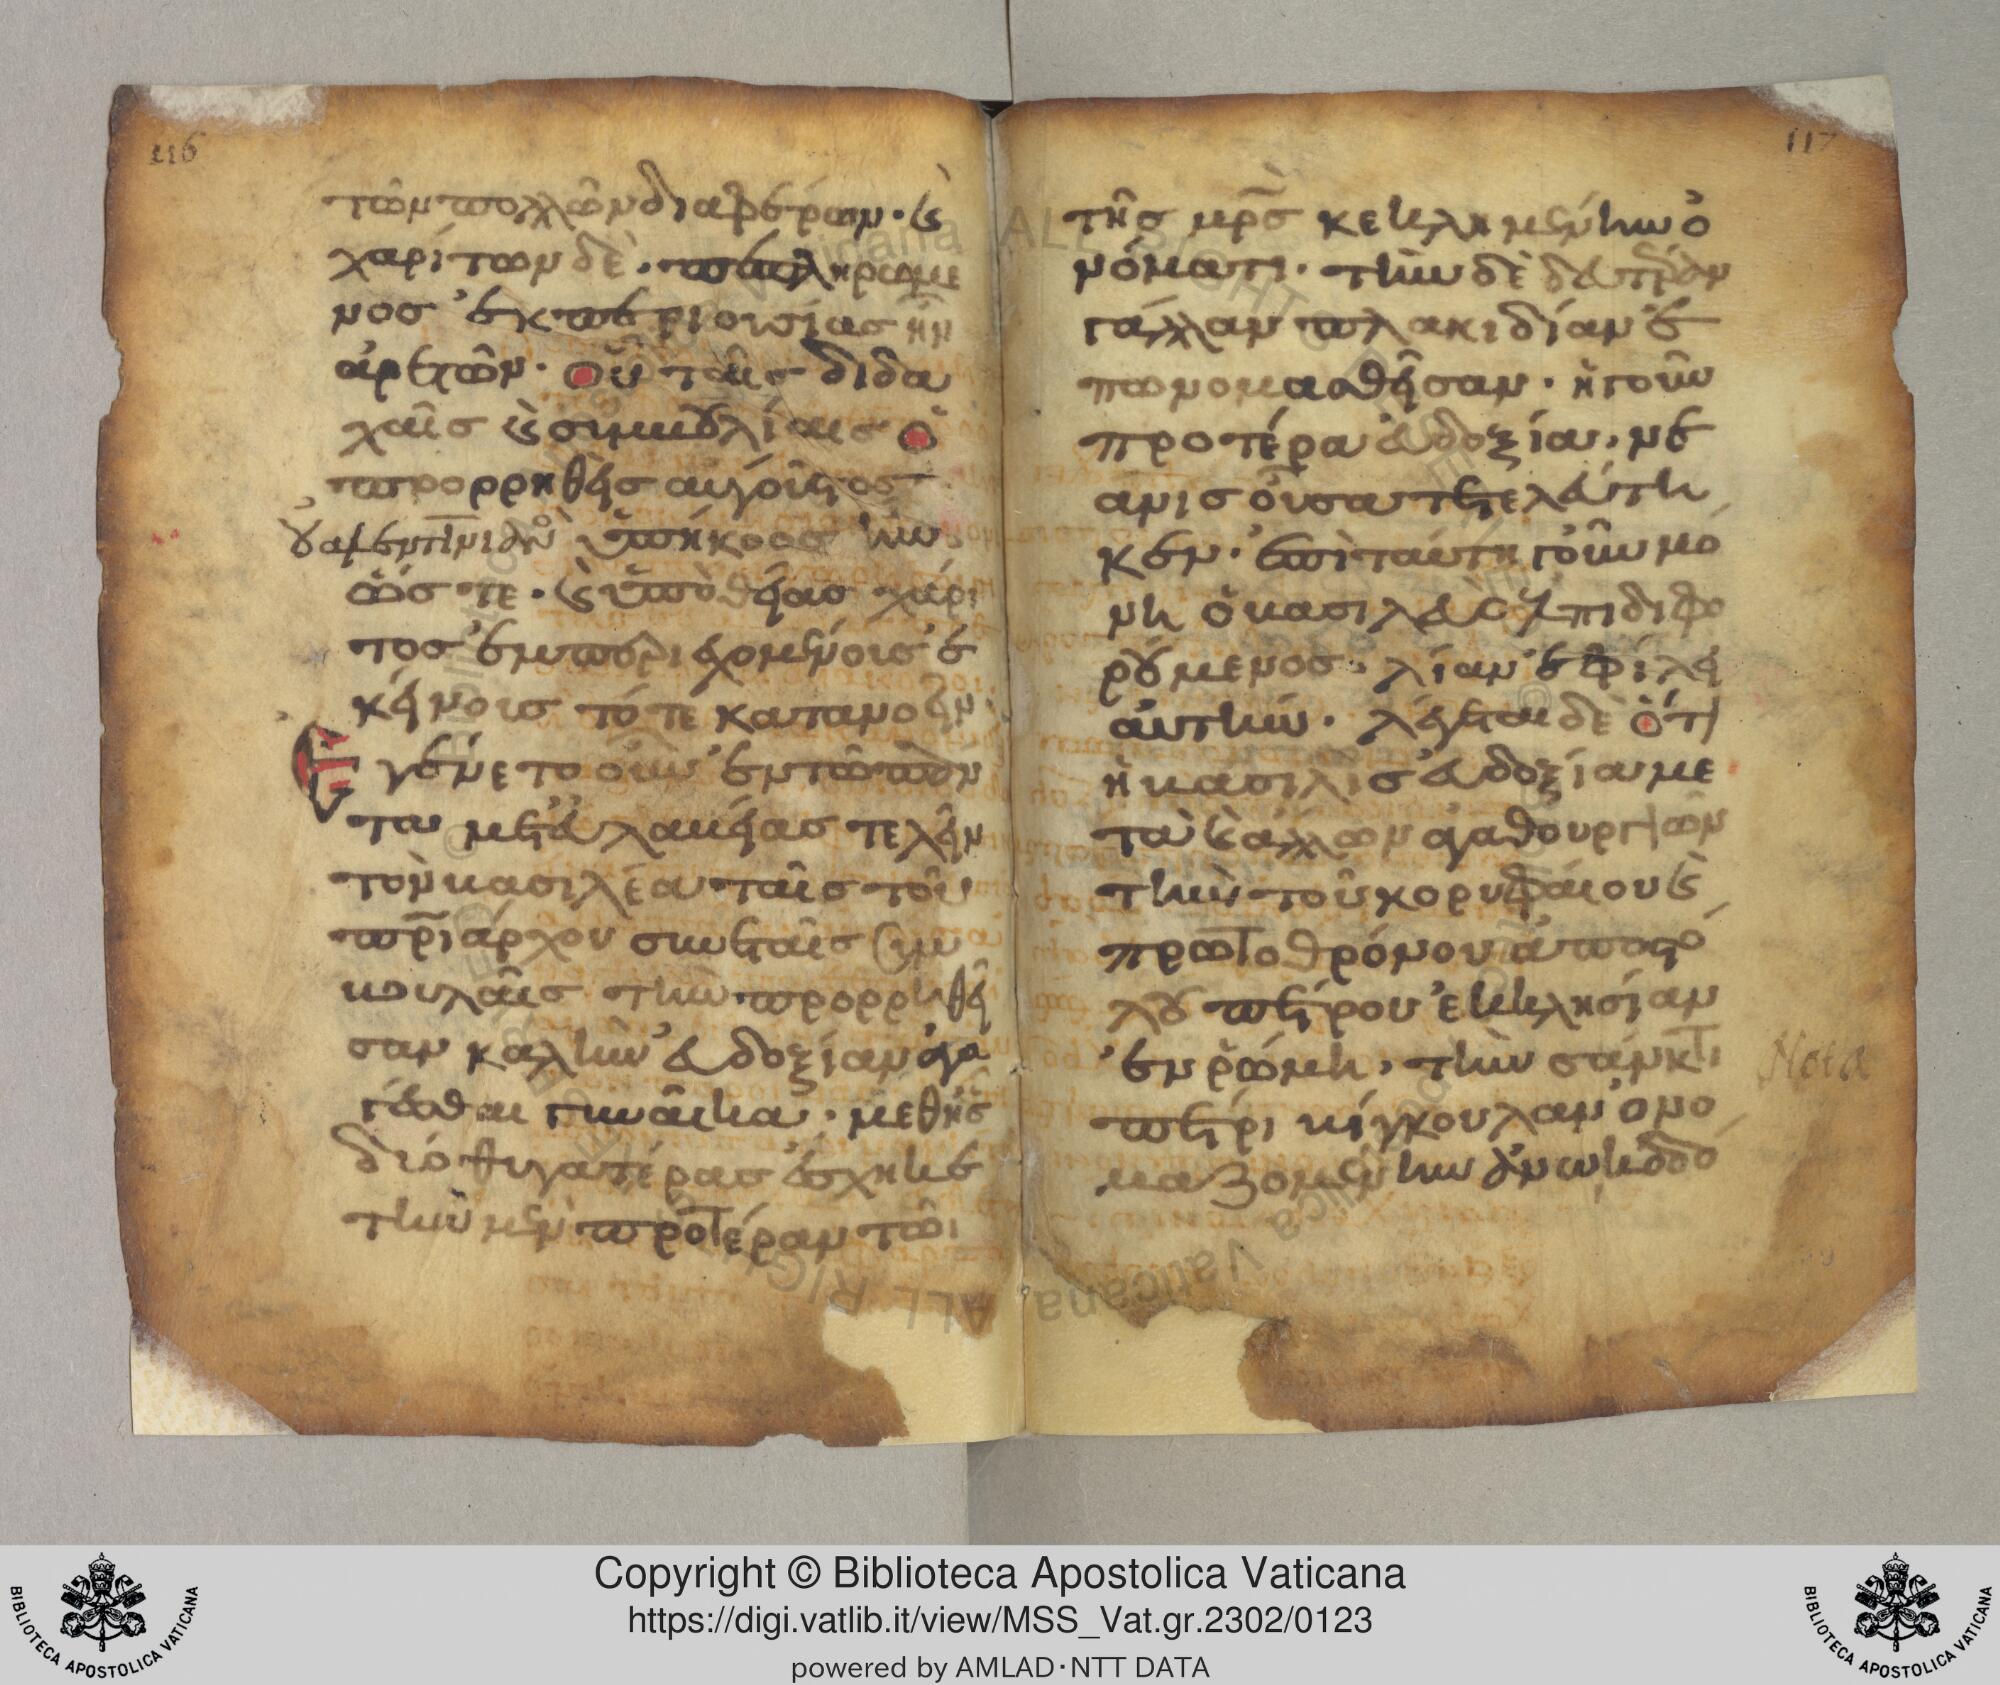 116
τῶν πολλῶν διαφέρων· καὶ
χαρίτων δὲ· πεπληρωμέ
νος ἐκ περιουσίας ἦν
ἀρετῶν· Οὗ ταῖς διδα
χαῖς καὶ συμβουλίαις ὁ
προρρηθεὶς αὔγουστος
οὐαλεντινιανὸς ὑπήκοος ἦν
ὥς τε· καὶ ὑπὸ θείας χάρι
τος ἐμπεριεχομένοις ἐ
κείνοις τότε κατανοεῖν·
Ἐγένετο οὖν ἐν τῶ
τὰ μετὰ τελεῖν
τὸν βασιλέα ταῖς τοῦ
πριάρχου συν
βουλαῖς τὴν προρρηθεῖ
σαν καλὴν εὐδοξίαν ἀγα
γέσθαι γυναῖκα· μεθῆς
δύο θυγατέρας ἔσχηκε
τὴν μὲν προτέραν τῶι
117
τῆς μρς κεκλημένην ὀ
νόματι· τὴν δὲ δευτέραν
γάλλαν πλακιδίαν ἐ
πωνομασθεῖσαν· ἡ γοῦν
προτέρα εὐδοξία· νε
ᾶνις οὖσα τετελεύτη
κεν· ἐπὶ ταύτη γοῦν μό
νη ὁ βασιλεὺς ἐλπιδιφο
ρούμενος· λίαν ἐφίλει
αὐτήν· λέγεται δὲ ὅτι
ἡ βασιλὶς εὐδοξία με
τὰ καὶ ἄλλων ἀγαθουργιῶν
τὴν τοῦ κορυφαίου καὶ
πρωτοθρόνου ἀποστό
λου πέτρου ἐκκλησίαν
ἐν ῥώμη· τὴν σάνκτι
πέτρι βίγκουλαν ὀνο
μαζομένην ἀνωκοδό
Nota
Copyright © Biblioteca Apostolica Vaticana
https://digi.vatlib.it/view/MSS_Vat.gr.2302/0123
powered by AMLAD·NTT DATA
BIBLIOTECA APOSTOLICA VATICANA
BIBLIOTECA APOSTOLICA VATICANA